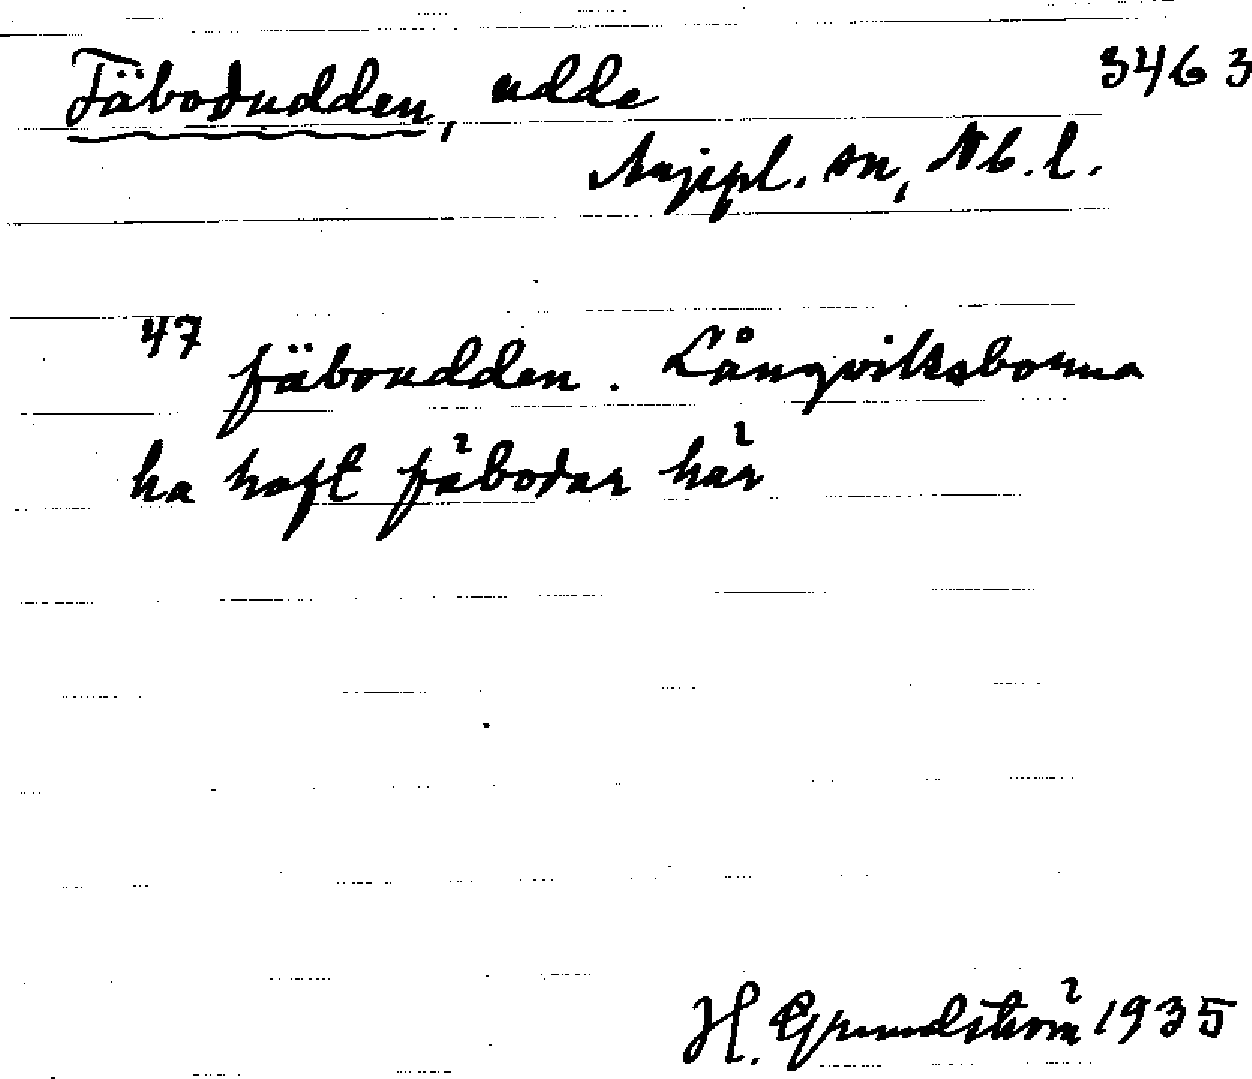 Fäbodudden, udde 3463
Arjepl. sn, Nb. l.
47 fäboudden. Långviksborna
ha haft fäbodar här
H. Grundström 1935